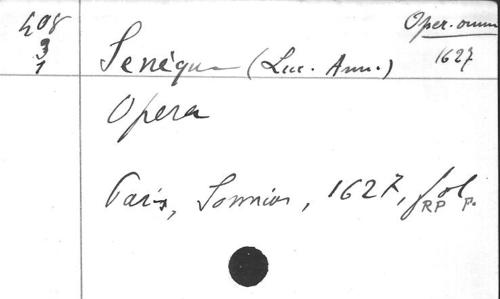 408
3
1
Oper. omn
1627
Senèque (Luc. Ann.)
Opera
Paris, Sonnius, 1627, fol.
RP P.